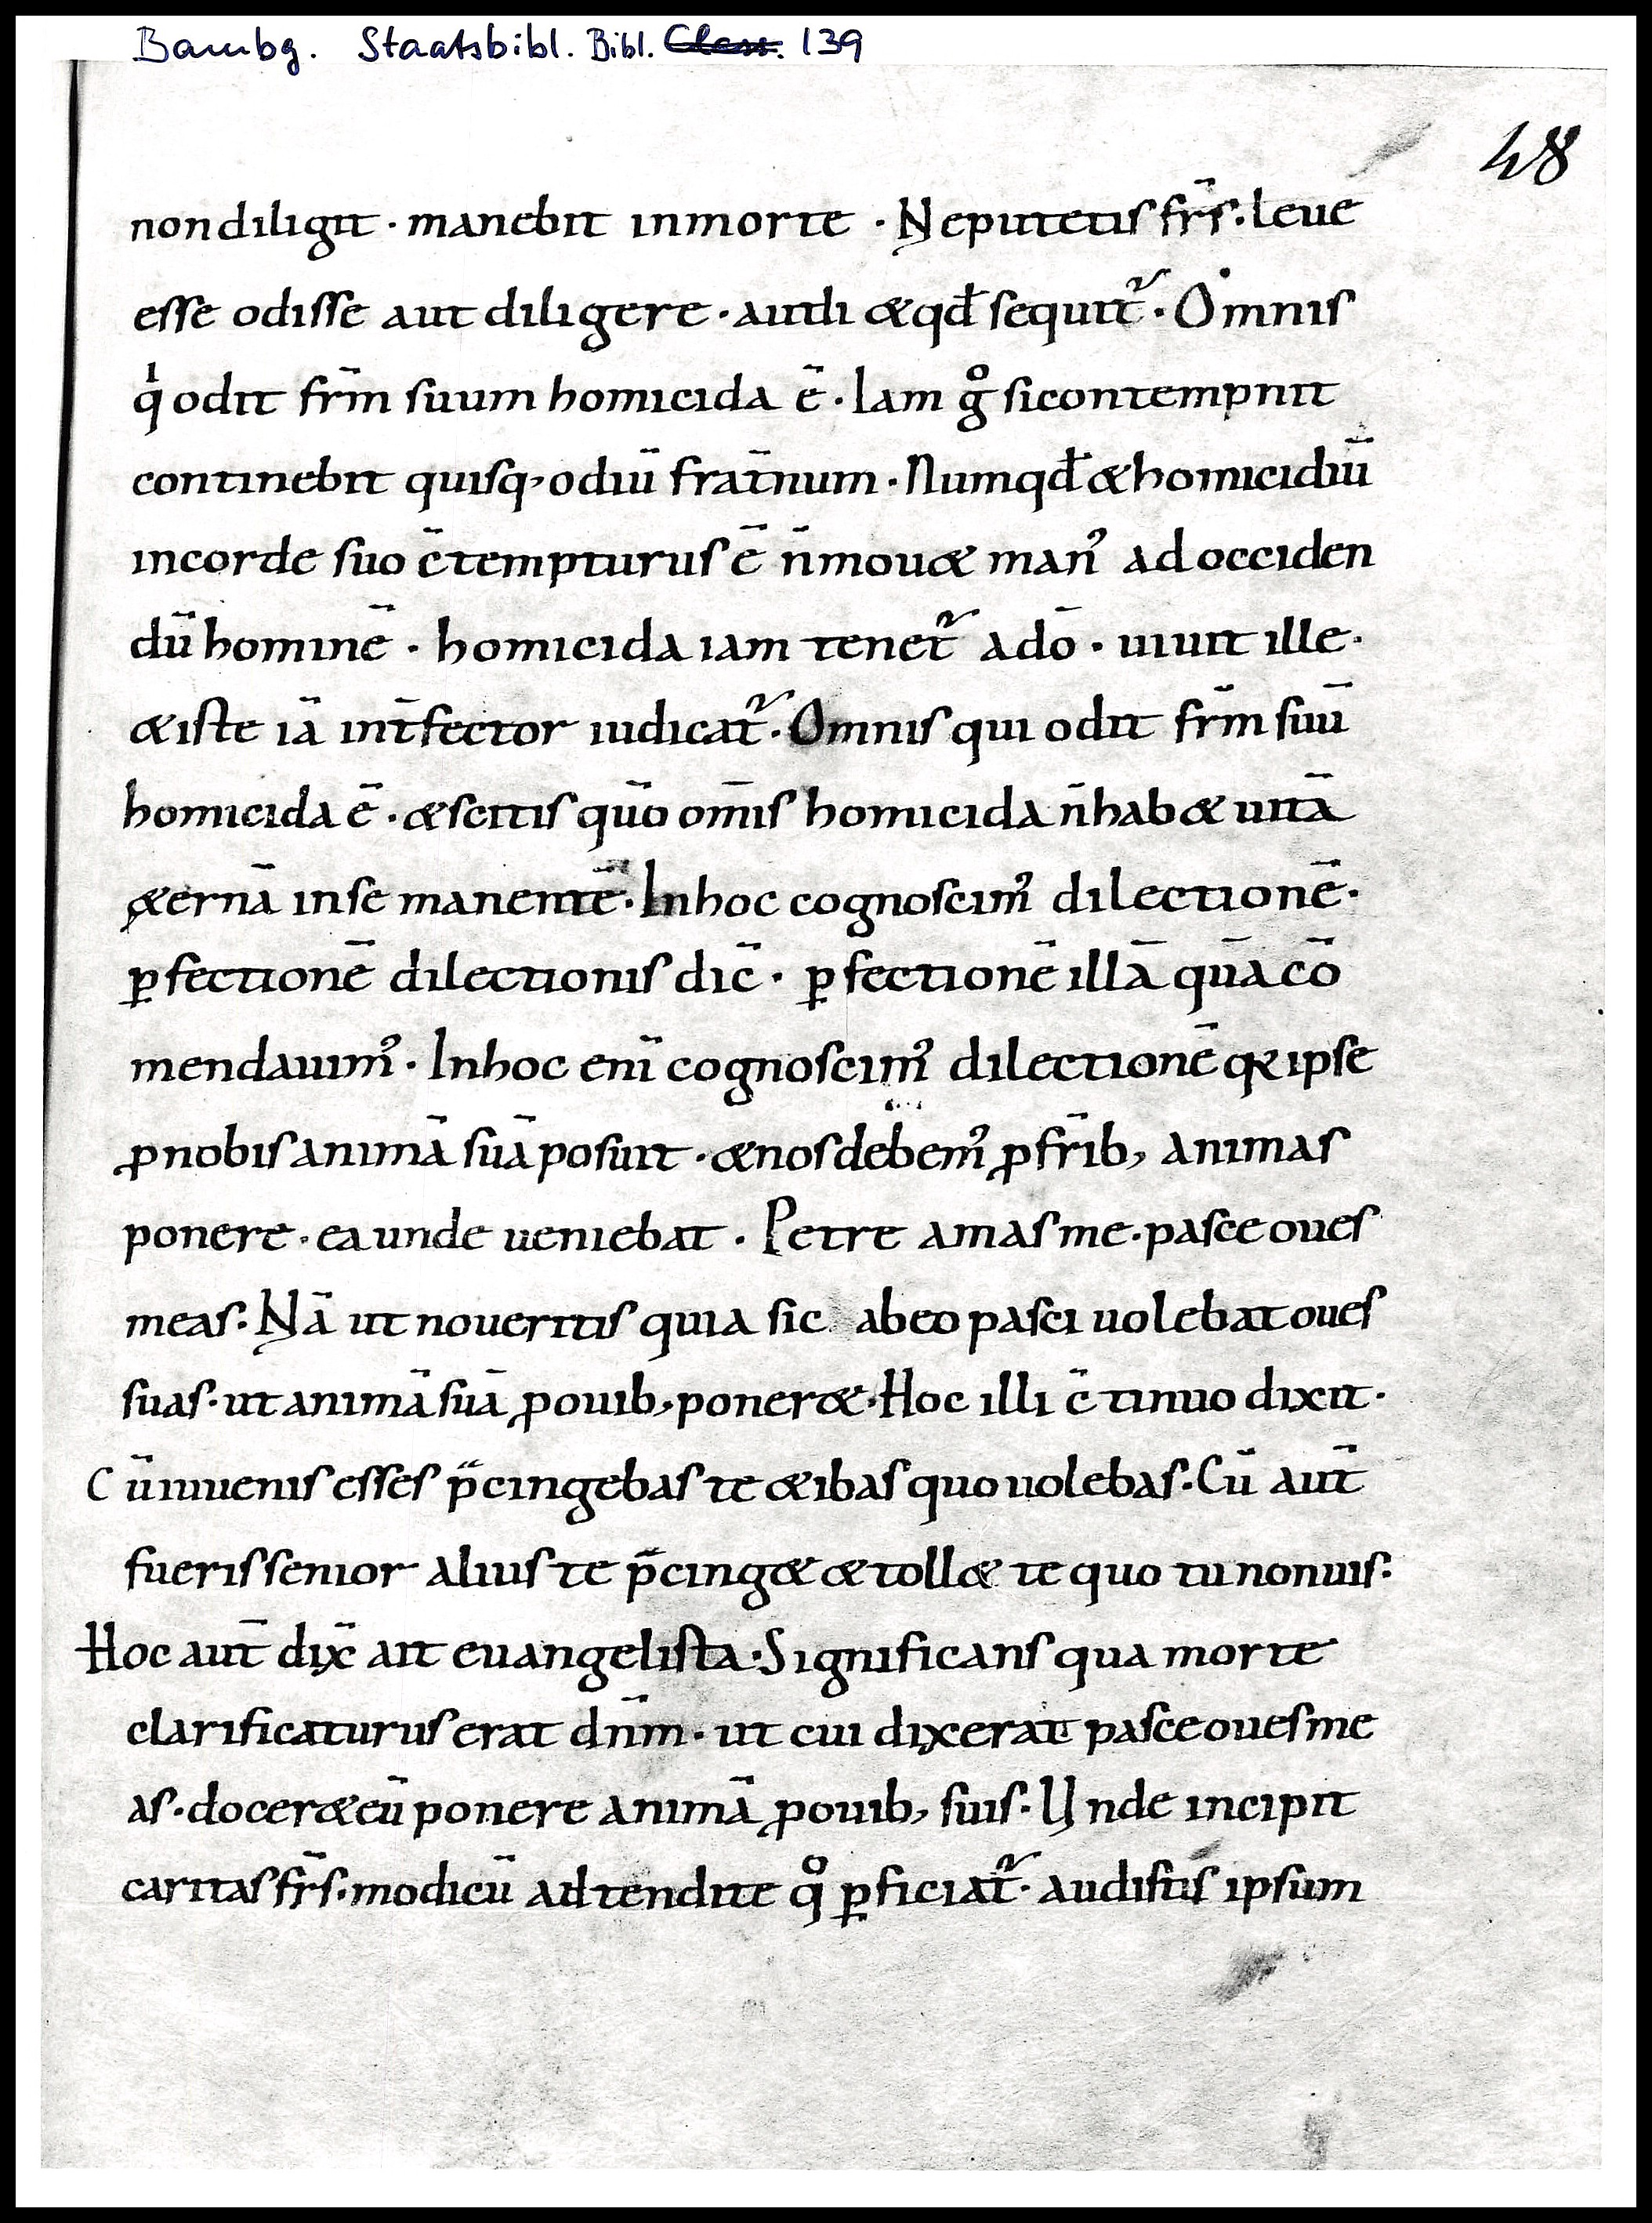 Bambg. Staatsbibl. Bibl. Class. 139
48
non diligit · manebit inmorte · Neputetis fr̄s · leue
esse odisse aut diligere · audi &qd̄ sequit᷑ · Omnis
qͥ odit fr̄m suum homicida ē · Iam gͦ sicontempnit
continebit quisq, odiū frat̄num · Numqd̄ &homicidiū
incorde suo c̄tempturus ē n̄mou& man᾿ adocciden
dū hominē · homicida iam tenet᷑ ado᷒̄ · uiuit ille ·
&iste iā int̄fector iudicat᷑ · Omnis qui odit fr̄m suū
homicida ē · &scitis qūo om̄is homicida n̄hab& uitā
ę&ernā inse manentē · Inhoc cognoscim᾿ dilectionē ·
ꝑfectionē dilectionis dic̄ · ꝑfectionē illā quā cō
mendauim᾿ · Inhoc eni̅ cognoscim᾿ dilectionē qꝛ ipse
ꝓnobis animā suā posuit · &nos debem᾿ ꝓfr̄ib, animas
ponere · ea unde ueniebat · Petre amas me · pasce oues
meas · Nā ut noueritis quia sic abeo pasci uolebat oues
suas · ut animā suā ꝓouib, poner& · Hoc illi c̄tinuo dixit ·
Cū iuuenis esses p̄cingebas te &ibas quo uolebas · Cū aut̄
fueris senior alius te p̄cing& & toll& te quo tu nonuis :
Hoc aut̄ dix̄ ait euangelista · Significans qua morte
clarificaturus erat dn̄m · ut cui dixerat pasce oues me
as · docer& eū ponere animā ꝓouib, suis · Unde incipit
caritas fr̄s · modicū adtendite qͦ ꝑficiat᷑ · audistis ipsum